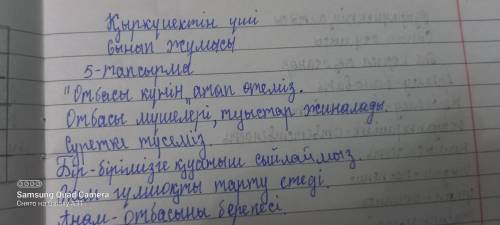 Қыркүйектің үші
Сынып жұмысы
5-тапсырма
"Отбасы күнін" атап өтеміз.
Отбасы мүшелері, туыстар жиналады.
Суретке түсеміз.
Бір-бірімізге қуаныш сыйлаймыз.
гүлшоқты тарту етеді.
Анам-отбасының берекесі.
Samsung Quad Camera
Снято на Galaxy A31